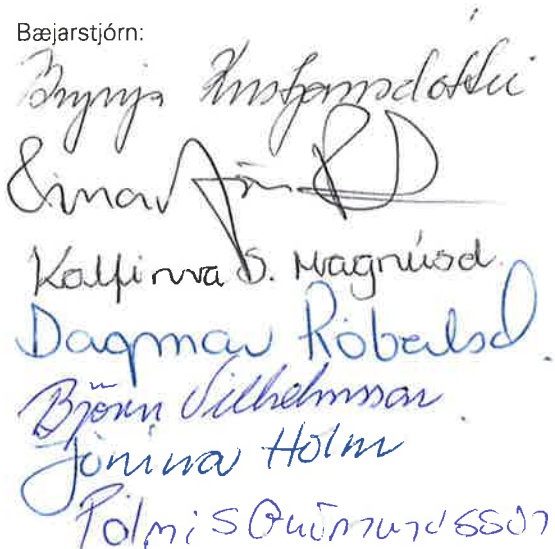 Bæjarstjórn:
Brynja Kristjansdóttir
Einar
Kolfinna S. Magnúsd.
Dagmar Róbertsd.
Björn Vilhelmsson
Jónína Holm
Pálmi S Guðmundsson